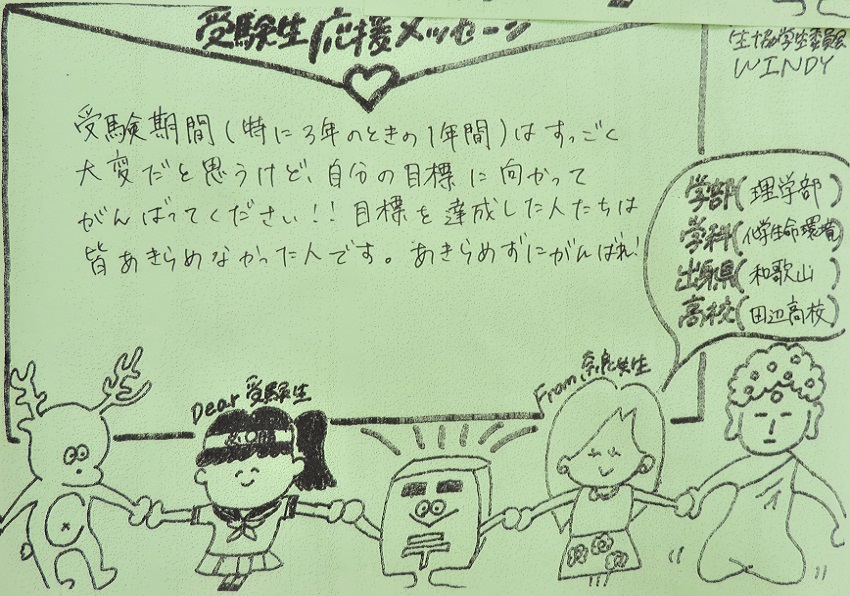 受験生応援メッセージ
生協学生委員会
WINDY
受験期間(特に3年のときの1年間)はすっごく
大変だと思うけど、自分の目標に向かって
がんばってください!!目標を達成した人たちは
皆あきらめなかった人です。あきらめずにがんばれ!
学部(理学部)
学科(化学生命環境)
出身県(和歌山)
高校(田辺高校)
Dear 受験生
From 奈良女生
〒